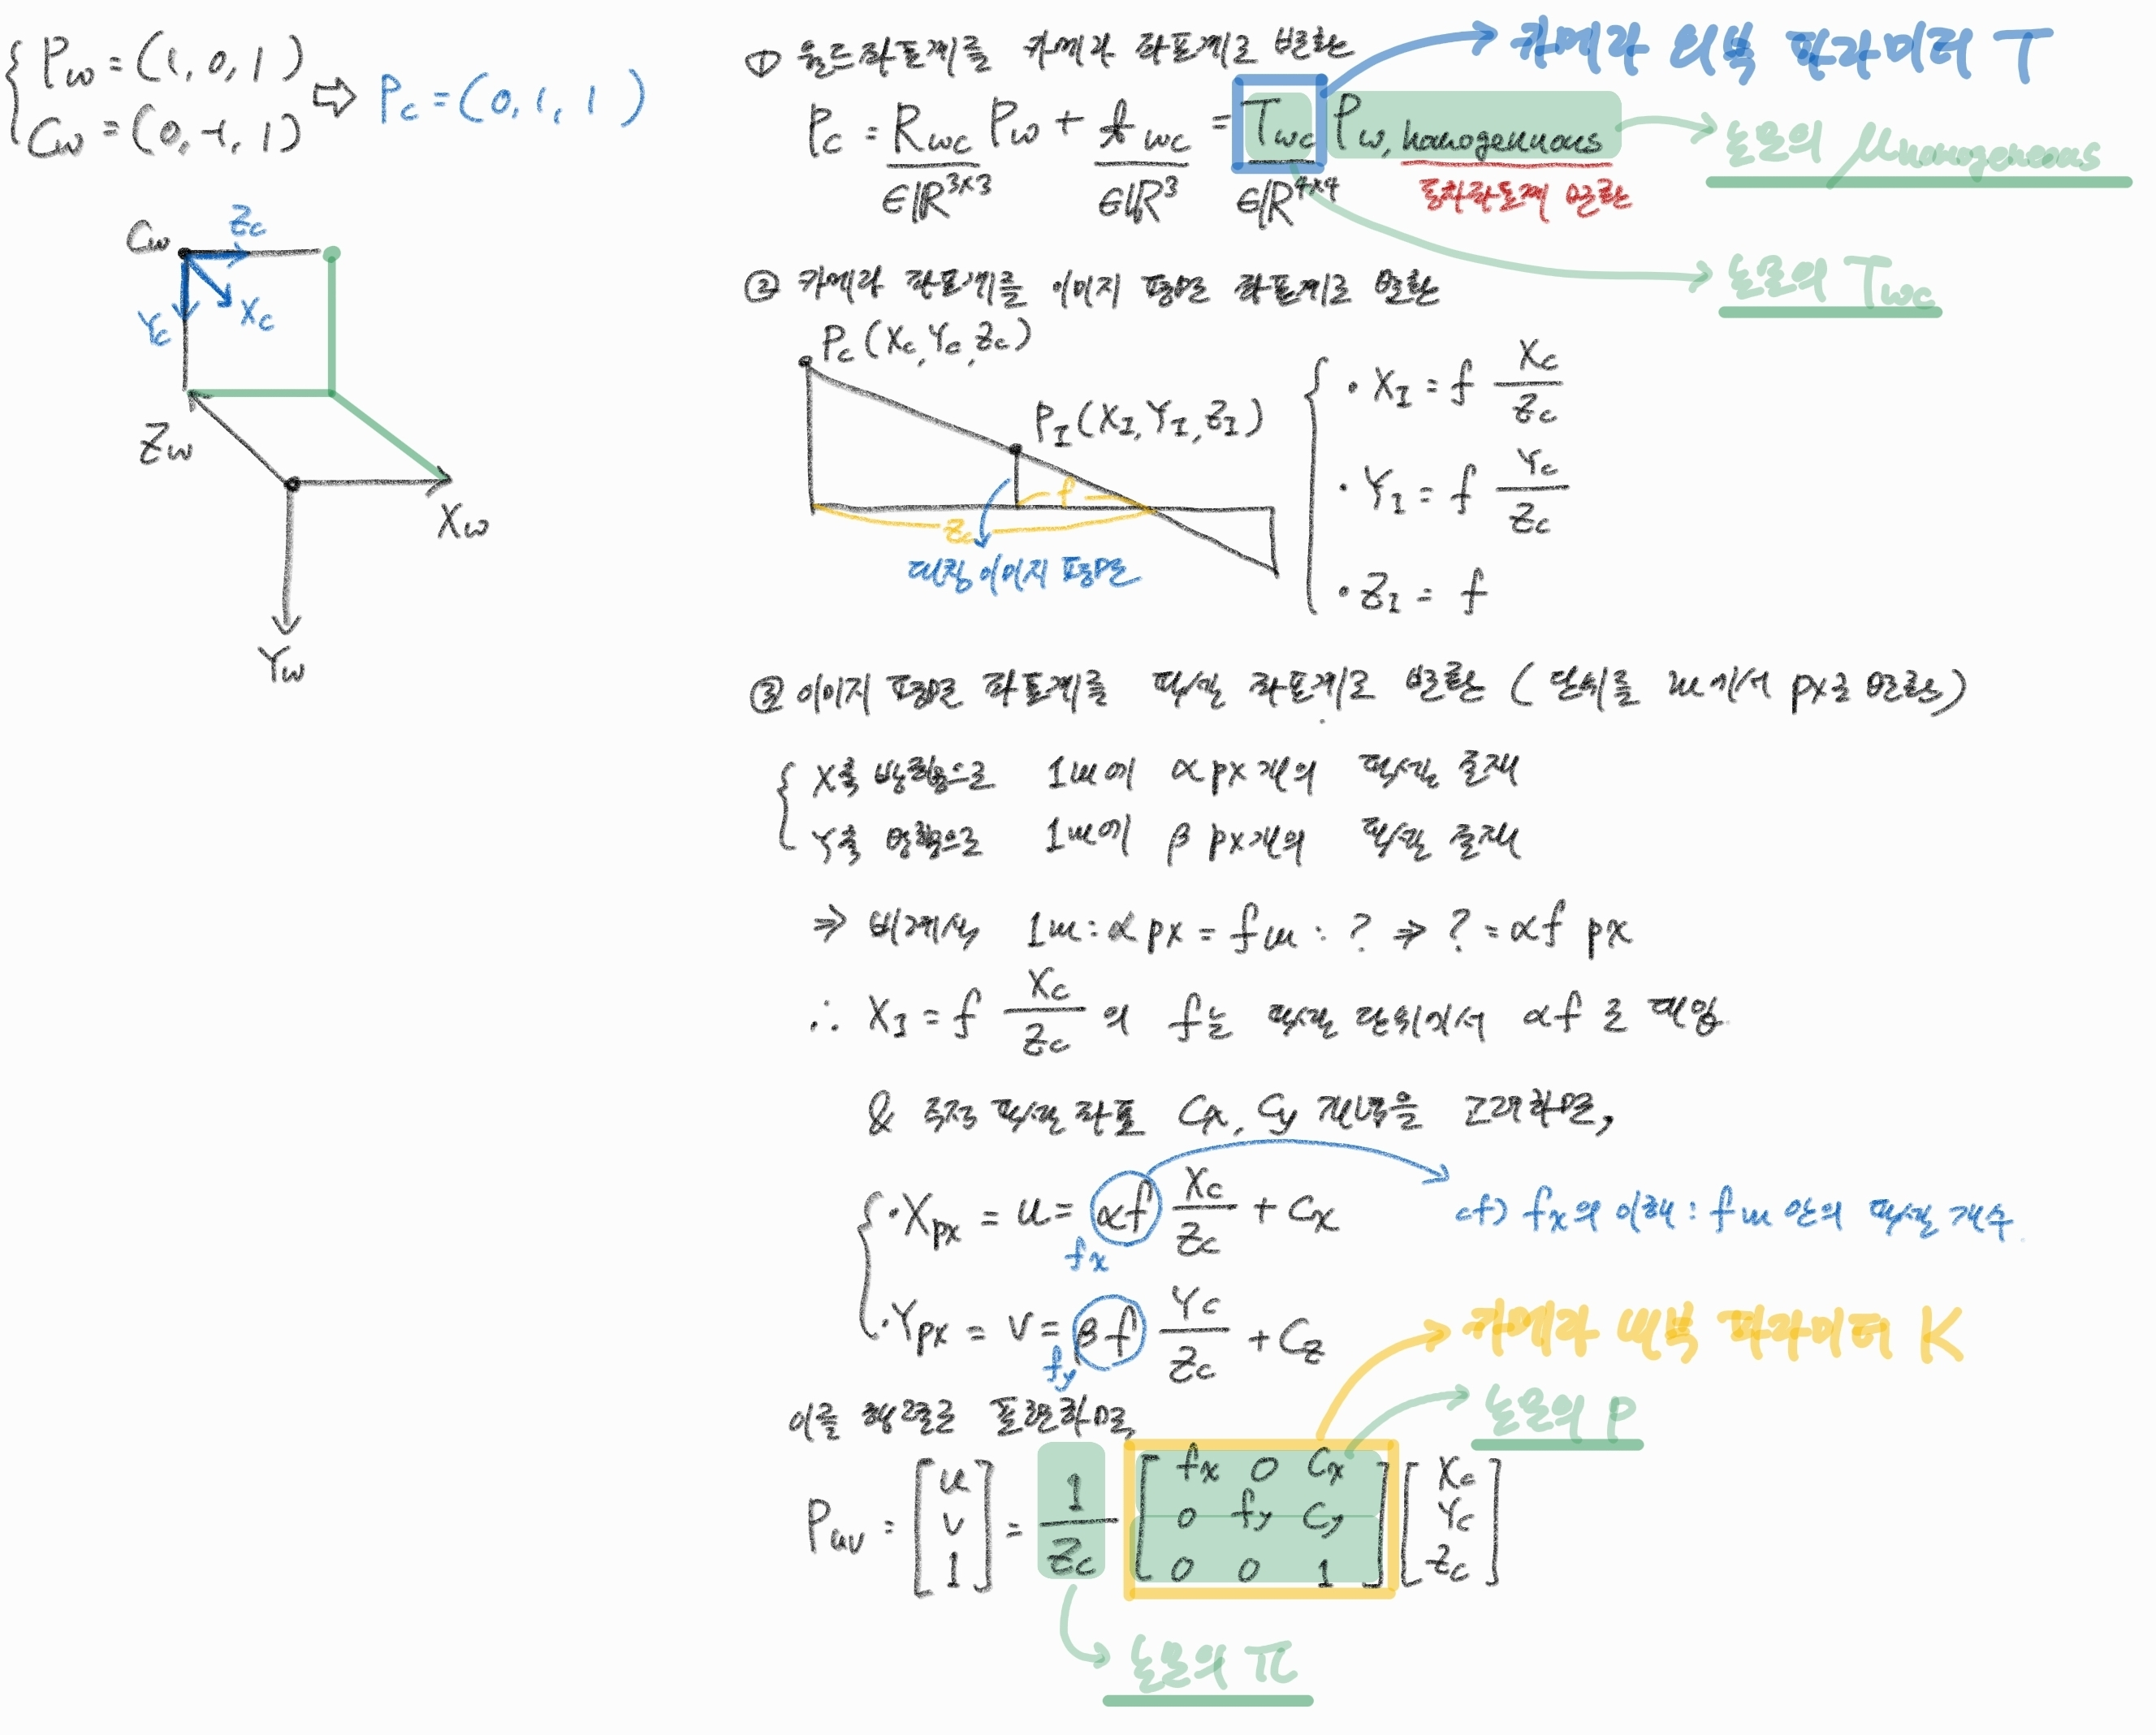 P_w = (1, 0, 1)
C_w = (0, -1, 1)
⇨ P_c = (0, 1, 1)
C_w
Z_c
X_c
Y_c
Z_w
X_w
Y_w
① 월드좌표계를 카메라 좌표계로 변환
→ 카메라 외부 파라미터 T
P_c = R_wc P_w + t_wc = T_wc P_w, homogenuous
∈ℝ^3×3 ∈ℝ^3 ∈ℝ^4×4 동차좌표계 변환
→ 논문의 μ_homogeneous
→ 논문의 T_wc
② 카메라 좌표계를 이미지 평면 좌표계로 변환
P_c (X_c, Y_c, Z_c)
P_I (X_I, Y_I, Z_I)
f
Z_c
대칭 이미지 평면
· X_I = f X_c / Z_c
· Y_I = f Y_c / Z_c
· Z_I = f
③ 이미지 평면 좌표계를 픽셀 좌표계로 변환 (단위를 m에서 px로 변환)
X축 방향으로 1m에 α px개의 픽셀 존재
Y축 방향으로 1m에 β px개의 픽셀 존재
⇒ 비례식 1m : α px = f m : ? ⇒ ? = αf px
∴ X_I = f X_c / Z_c 의 f는 픽셀 단위에서 αf 로 대입
& 주점 픽셀 좌표 C_x, C_y 개념을 고려하면,
· X_px = u = αf X_c / Z_c + C_x
f_x
cf) f_x의 이해 : f m 안의 픽셀 개수
· Y_px = v = βf Y_c / Z_c + C_z
f_y
→ 카메라 내부 파라미터 K
→ 논문의 P
이를 행렬로 표현하면,
P_uv = [u v 1] = 1 / Z_c [f_x 0 C_x
0 f_y C_y
0 0 1] [X_c Y_c Z_c]
→ 논문의 π